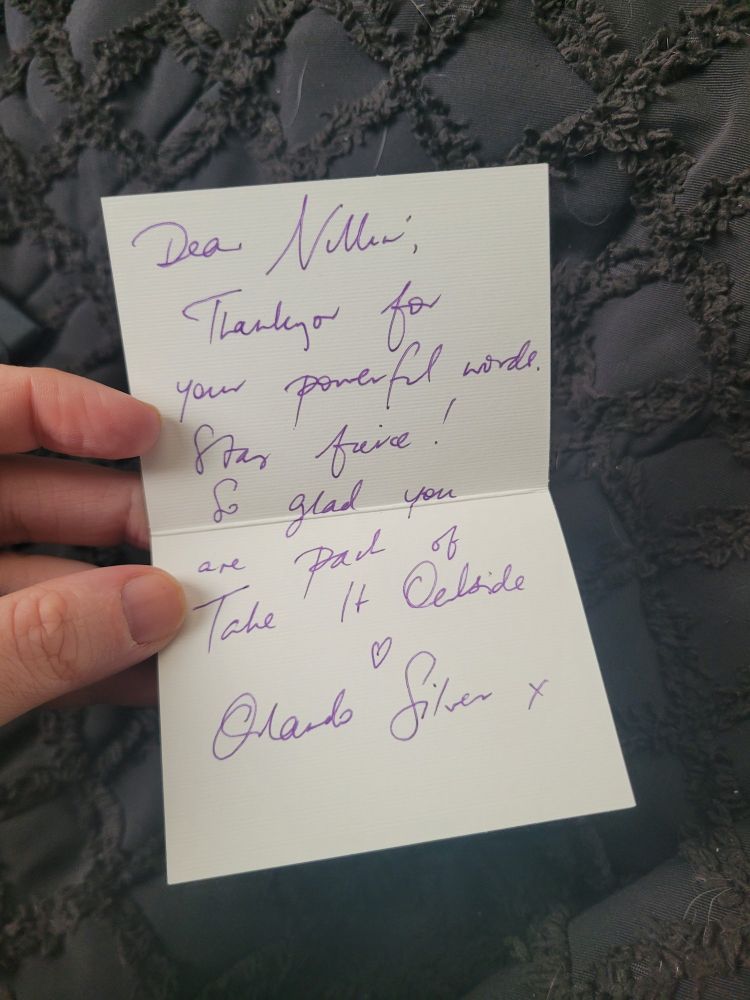 Dear
Thankyou for
your powerful words.
Stay fierce!
So glad you
are part of
Take It Outside
♡
Orlando Silver x